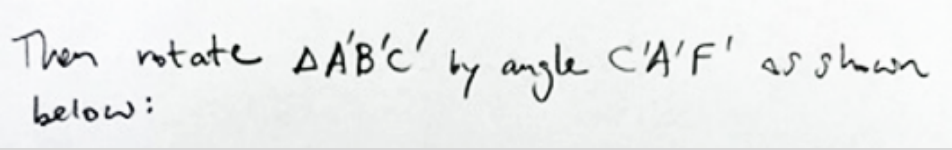 Then rotate ΔA'B'C' by angle C'A'F' as shown
below: